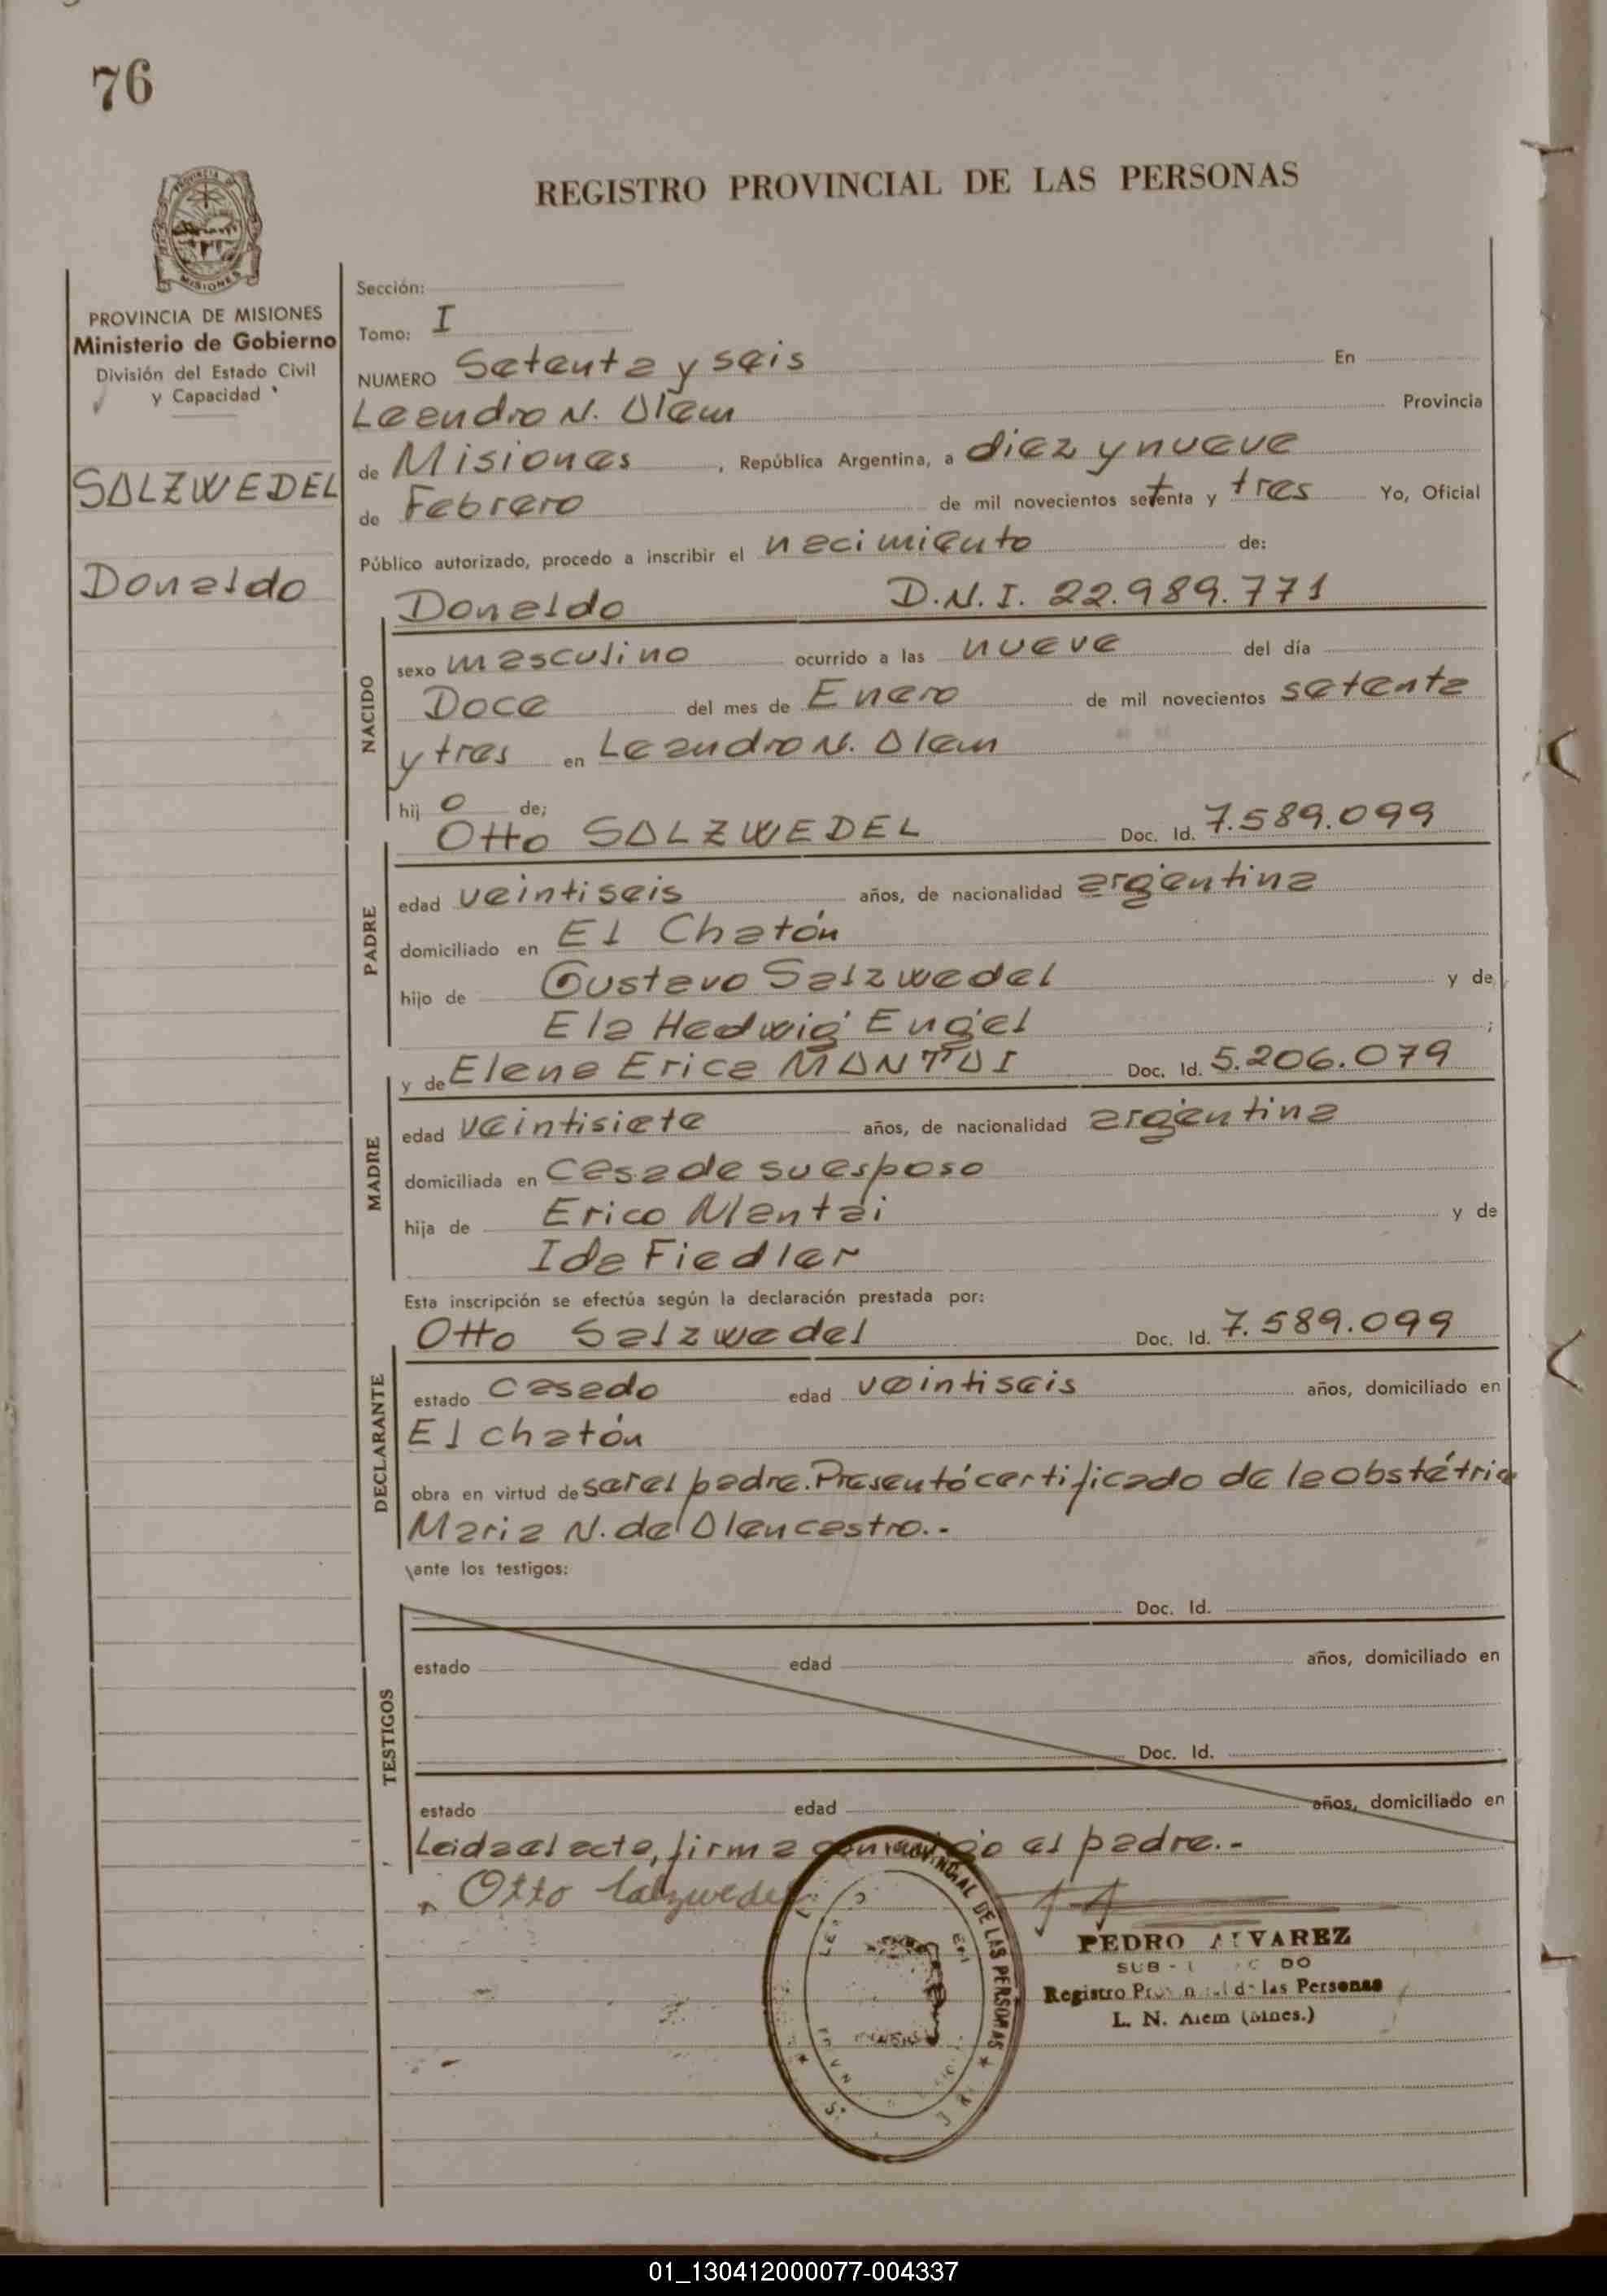 76
REGISTRO PROVINCIAL DE LAS PERSONAS
PROVINCIA DE MISIONES
Ministerio de Gobierno
División del Estado Civil
y Capacidad
SALZWEDEL
Donaldo
Sección:
Tomo: I
NUMERO Setenta y seis En
Leandro N. Alem Provincia
de Misiones, República Argentina, a diez y nueve
de Febrero de mil novecientos setenta y tres Yo, Oficial
Público autorizado, procedo a inscribir el nacimiento de:
Donaldo D.N.I. 22.989.771
NACIDO
sexo masculino ocurrido a las nueve del día
Doce del mes de Enero de mil novecientos setenta
y tres en Leandro N. Alem
hij o de;
Otto SALZWEDEL Doc. Id. 7.589.099
PADRE
edad veintiseis años, de nacionalidad argentina
domiciliado en El Chatón
hijo de Gustavo Salzwedel y de
Ela Hedwig Engel ;
y de Elena Erica MANTAI Doc. Id. 5.206.079
MADRE
edad veintisiete años, de nacionalidad argentina
domiciliada en Casa de su esposo
hija de Erico Mantai y de
Ida Fiedler
Esta inscripción se efectúa según la declaración prestada por:
Otto Salzwedel Doc. Id. 7.589.099
DECLARANTE
estado casado edad veintiseis años, domiciliado en
El chatón
obra en virtud de ser el padre. Presentó certificado de la obstétrica
Maria N. de Alencastro.-
ante los testigos:
Doc. Id.
TESTIGOS
estado edad años, domiciliado en
Doc. Id.
estado edad años, domiciliado en
Leida el acta, firma conmigo el padre.-
Otto Salzwedel
PROVINCIAL DE LAS PERSONAS
PEDRO ALVAREZ
SUB -
Registro Provincial de las Personas
L. N. Alem (Mnes.)
01_130412000077-004337